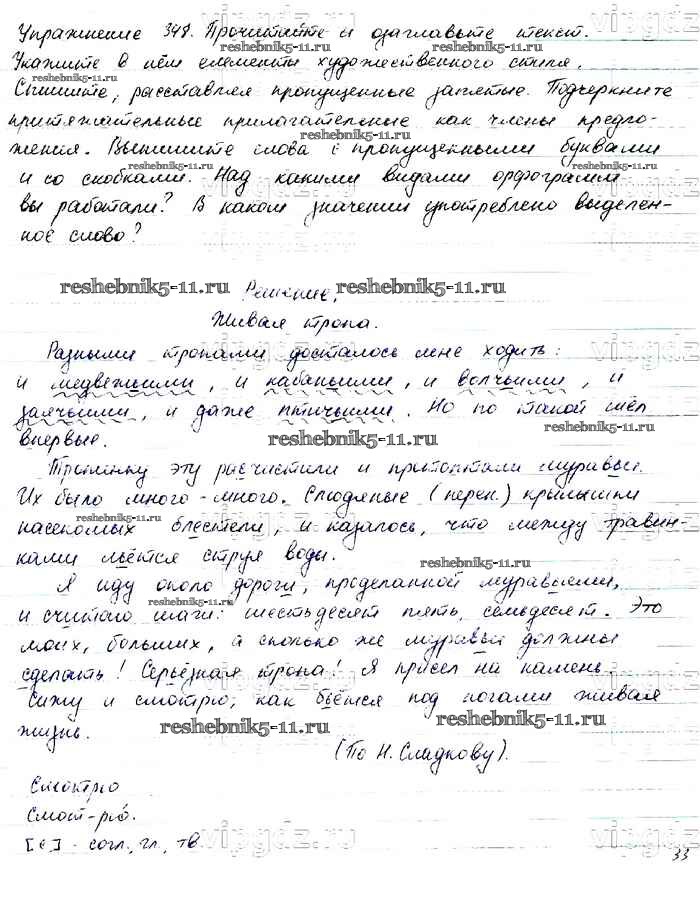 Упражнение 348. Прочитайте и озаглавьте текст.
Укажите в нём элементы художественного стиля.
Спишите, расставляя пропущенные запятые. Подчеркните
притяжательные прилагательные как члены предло-
жения. Выпишите слова с пропущенными буквами
и со скобками. Над какими видами орфограмм
вы работали? В каком значении употреблено выделен-
ное слово?
Решение.
Живая тропа.
Разными тропами досталось мне ходить:
и медвежьими, и кабаньими, и волчьими, и
заячьими, и даже птичьими. Но по такой шёл
впервые.
Тропинку эту расчистили и притоптали муравьи.
Их было много-много. Слюдяные (перен.) крылышки
насекомых блестели, и казалось, что между травин-
ками льётся струя воды.
Я иду около дороги, проделанной муравьями,
и считаю шаги: шестьдесят пять, семьдесят. Это
моих, больших, а сколько же муравьи должны
сделать! Серьёзная тропа! Я присел на камень
сижу и смотрю, как бьётся под ногами живая
жизнь.
(По Н. Сладкову).
Смотрю
Смот-рю.
[с] - согл., гл., тв
33
reshebnik5-11.ru
reshebnik5-11.ru
reshebnik5-11.ru
reshebnik5-11.ru
reshebnik5-11.ru
reshebnik5-11.ru
reshebnik5-11.ru
reshebnik5-11.ru
reshebnik5-11.ru
reshebnik5-11.ru
reshebnik5-11.ru
reshebnik5-11.ru
vipgdz.ru
vipgdz.ru
vipgdz.ru
vipgdz.ru
vipgdz.ru
vipgdz.ru
vipgdz.ru